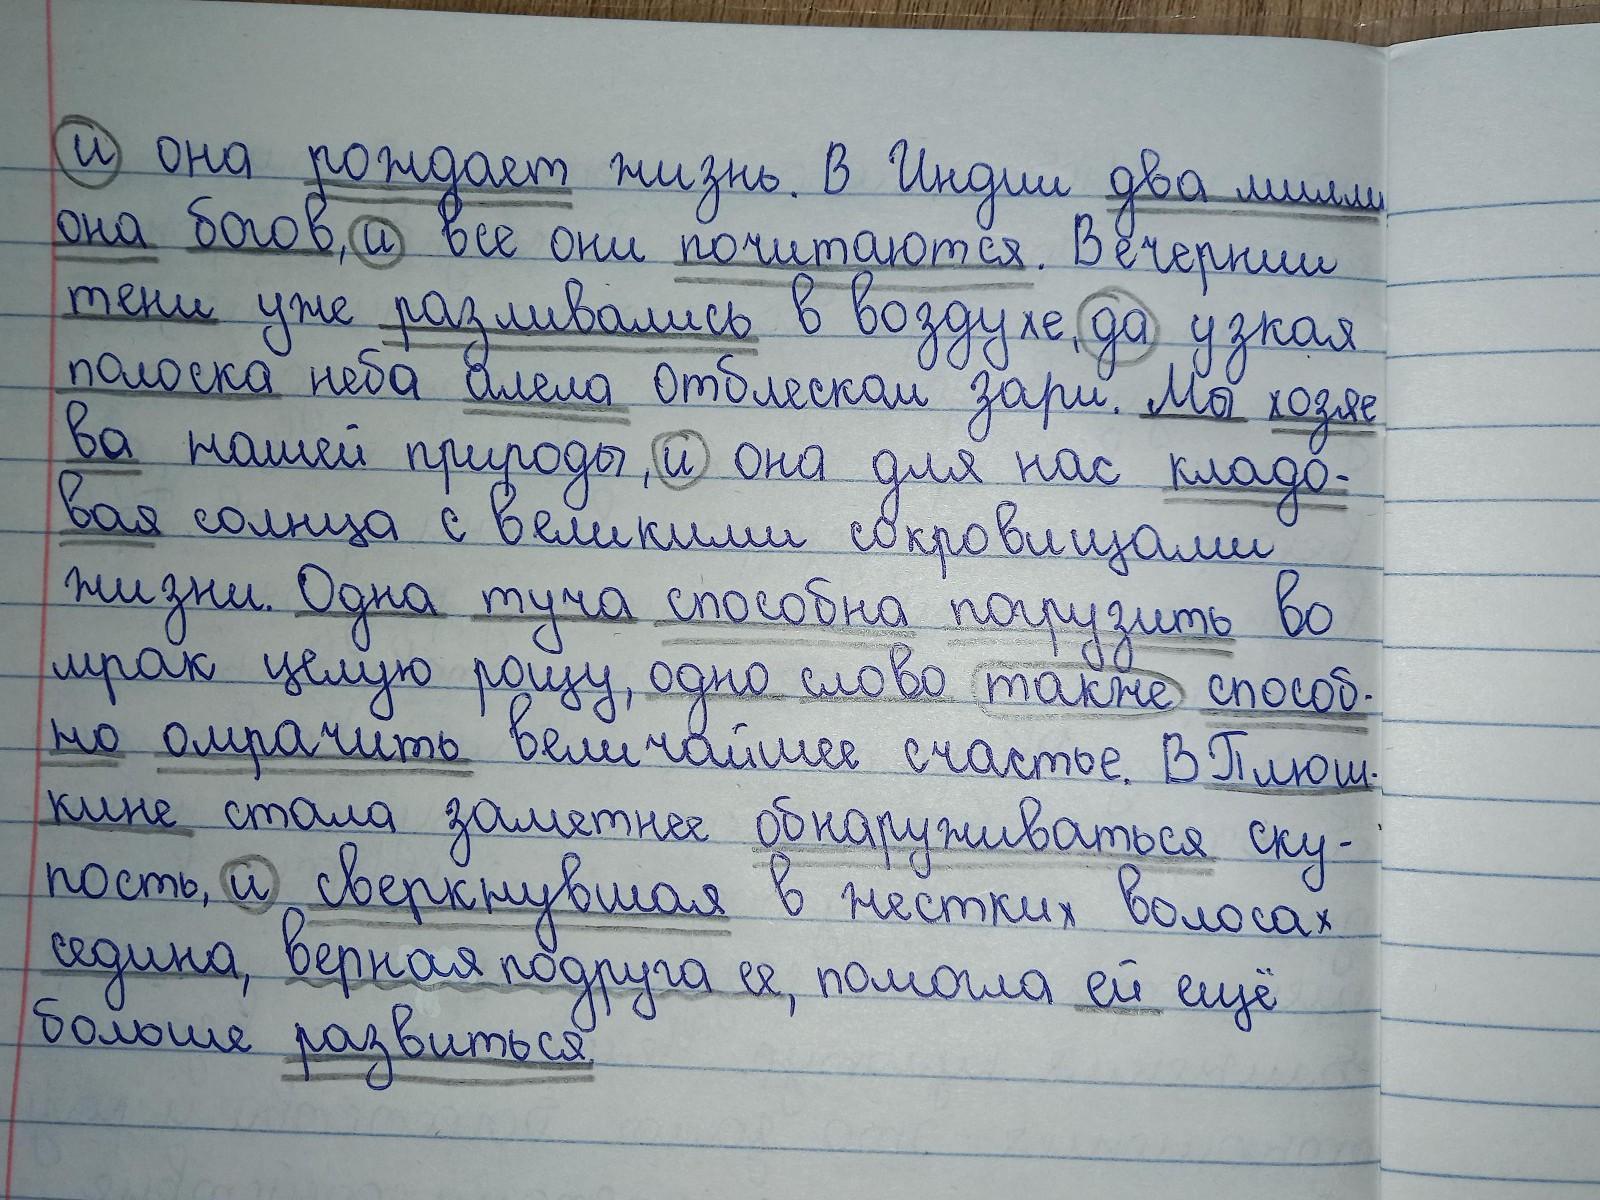 и она рождает жизнь. В Индии два милли
она богов, и все они почитаются. Вечернии
тени уже разливались в воздухе, да узкая
полоска неба алела отблеском зари. Мы хозяе
ва нашей природы, и она для нас кладо-
вая солнца с великими сокровищами
жизни. Одна туча способна погрузить во
мрак целую рощу, одно слово также способ-
но омрачить величайшее счастье. В Плюш-
кине стала заметнее обнаруживаться ску-
пость, и сверкнувшая в жестких волосах
седина, верная подруга ее, помогла ей ещё
больше развиться.